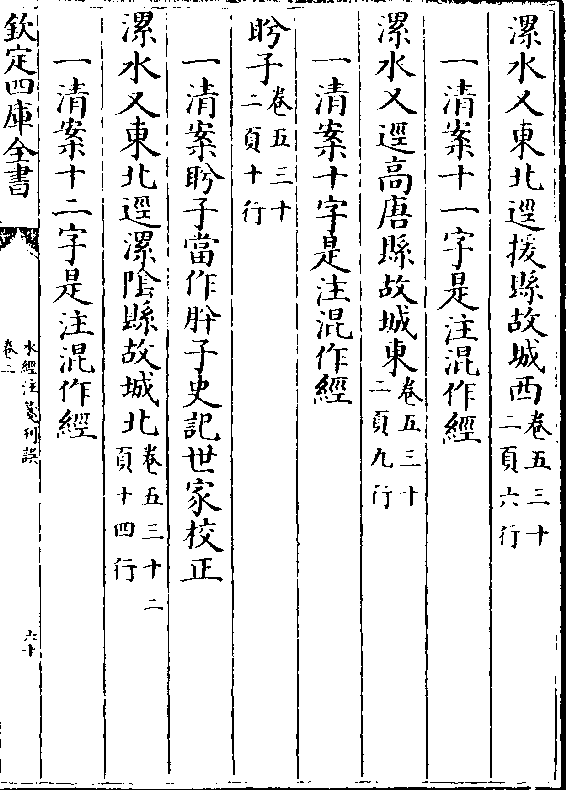 漯水又東北逕援縣故城西卷五三十二頁六行
一清案十一字是注混作經
漯水又逕高唐縣故城東卷五三十二頁九行
一清案十字是注混作經
盻子卷五三十二頁十行
一清案盻子當作肸子史記世家校正
漯水又東北逕漯隂縣故城北卷五三十二頁十四行
一清案十二字是注混作經
欽定四庫全書
水經注箋刊誤
卷二
六十